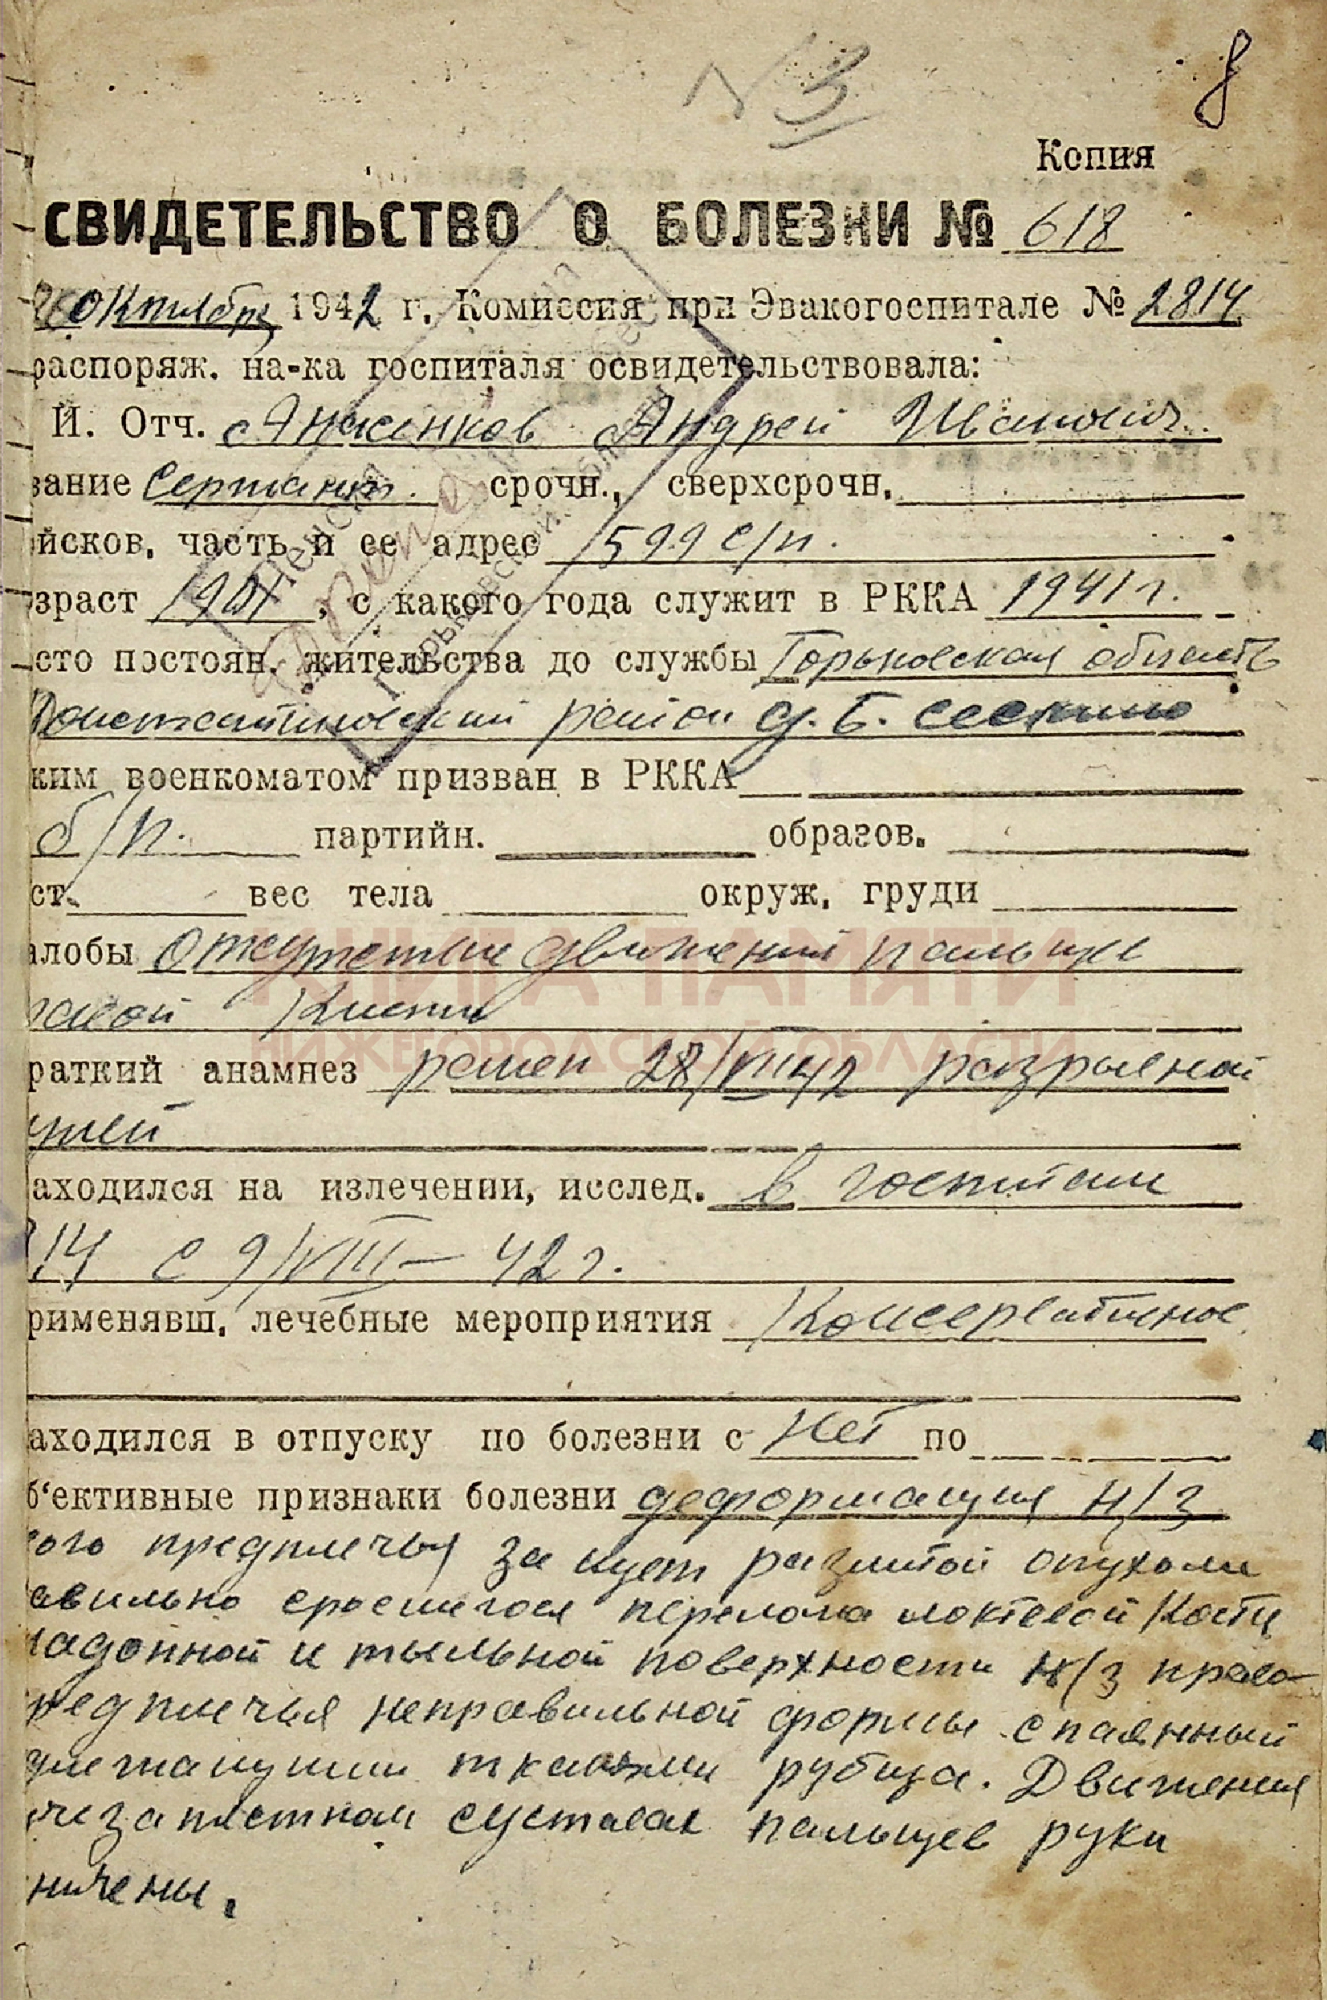 N 3
8
Копия
СВИДЕТЕЛЬСТВО О БОЛЕЗНИ № 618
октября 1942 г. Комиссия при Эвакогоспитале № 2814
распоряж. на-ка госпиталя освидетельствовала:
И. Отч. Андрей Иванович
вание сержант. срочн., сверхсрочн.
йсков. часть и ее адрес 599 с/п.
зраст 1901, с какого года служит в РККА 1941 г.
сто постоян. жительства до службы Горьковская область
район д. Б. Сескино
ким военкоматом призван в РККА
б/п. партийн. образов.
ст. вес тела окруж. груди
алобы отсутствие движений пальцев
кисти
раткий анамнез ранен 28/VII 42 разрывной
улей
аходился на излечении, исслед. в госпитале
814 с 9/VIII-42 г.
рименявш. лечебные мероприятия Консервативное
аходился в отпуску по болезни с нет по
б'ективные признаки болезни деформация н/з
ого предплечья за счет развитой опухоли
авильно сросшегося перелома локтевой кости
ладонной и тыльной поверхности н/з право-
редплечья неправильной формы спаянный
тканями рубца. Движения
чезапястном суставах пальцев руки
ничены.
Горьковской области
КНИГА ПАМЯТИ
НИЖЕГОРОДСКОЙ ОБЛАСТИ